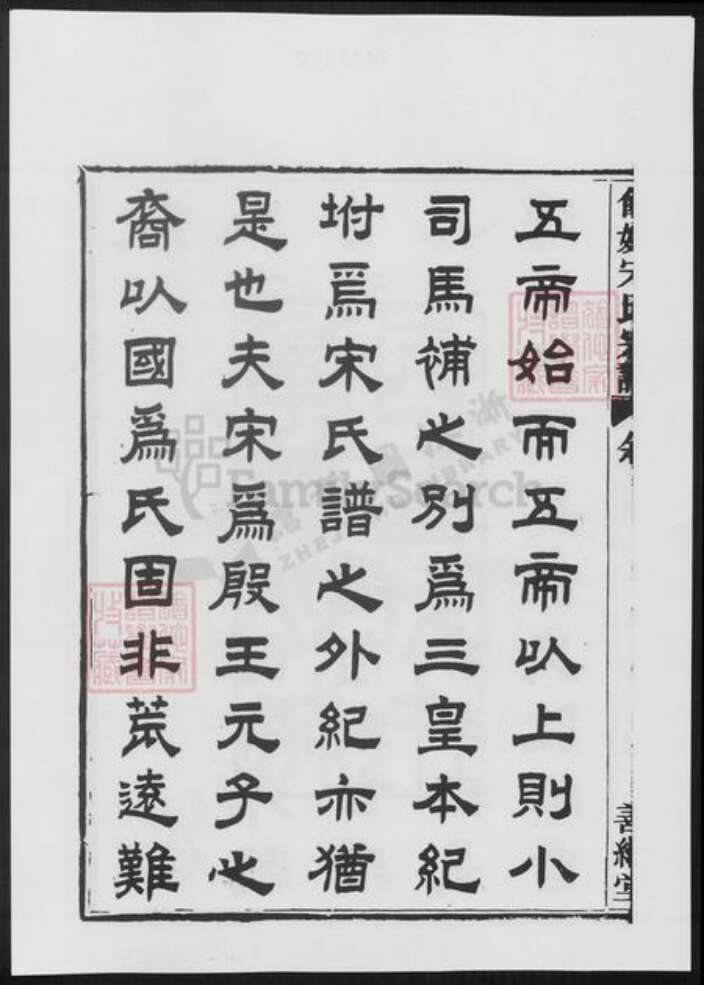 五帝始而五帝以上則小
司馬補之別爲三皇本紀
坿爲宋氏譜之外紀亦猶
是也夫宋爲殷王元子之
裔以國爲氏固非荒遠難
善繼堂
FamilySearch